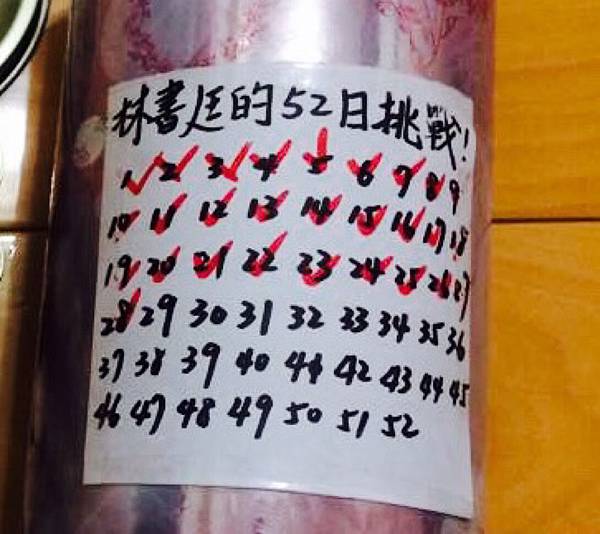 林書廷的52日挑戰!
1 2 3 4 5 6 7 8 9
10 11 12 13 14 15 16 17 18
19 20 21 22 23 24 25 26 27
28 29 30 31 32 33 34 35 36
37 38 39 40 41 42 43 44 45
46 47 48 49 50 51 52